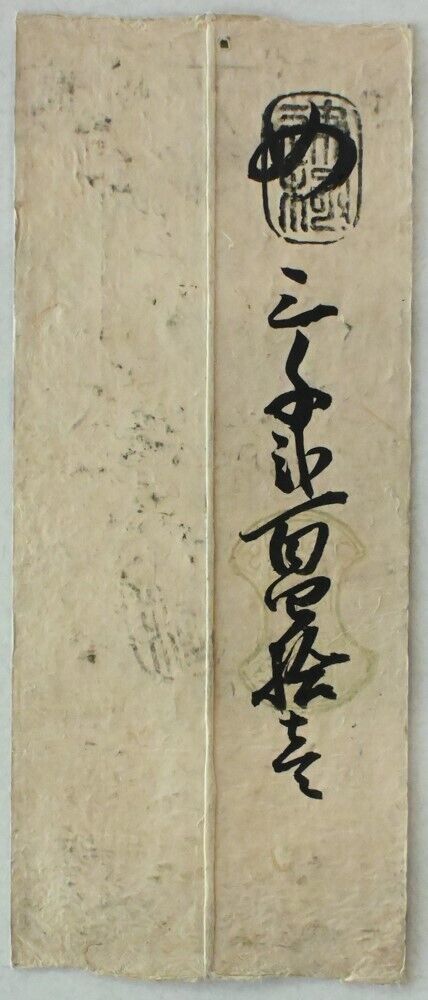 め三千弐百四拾壱